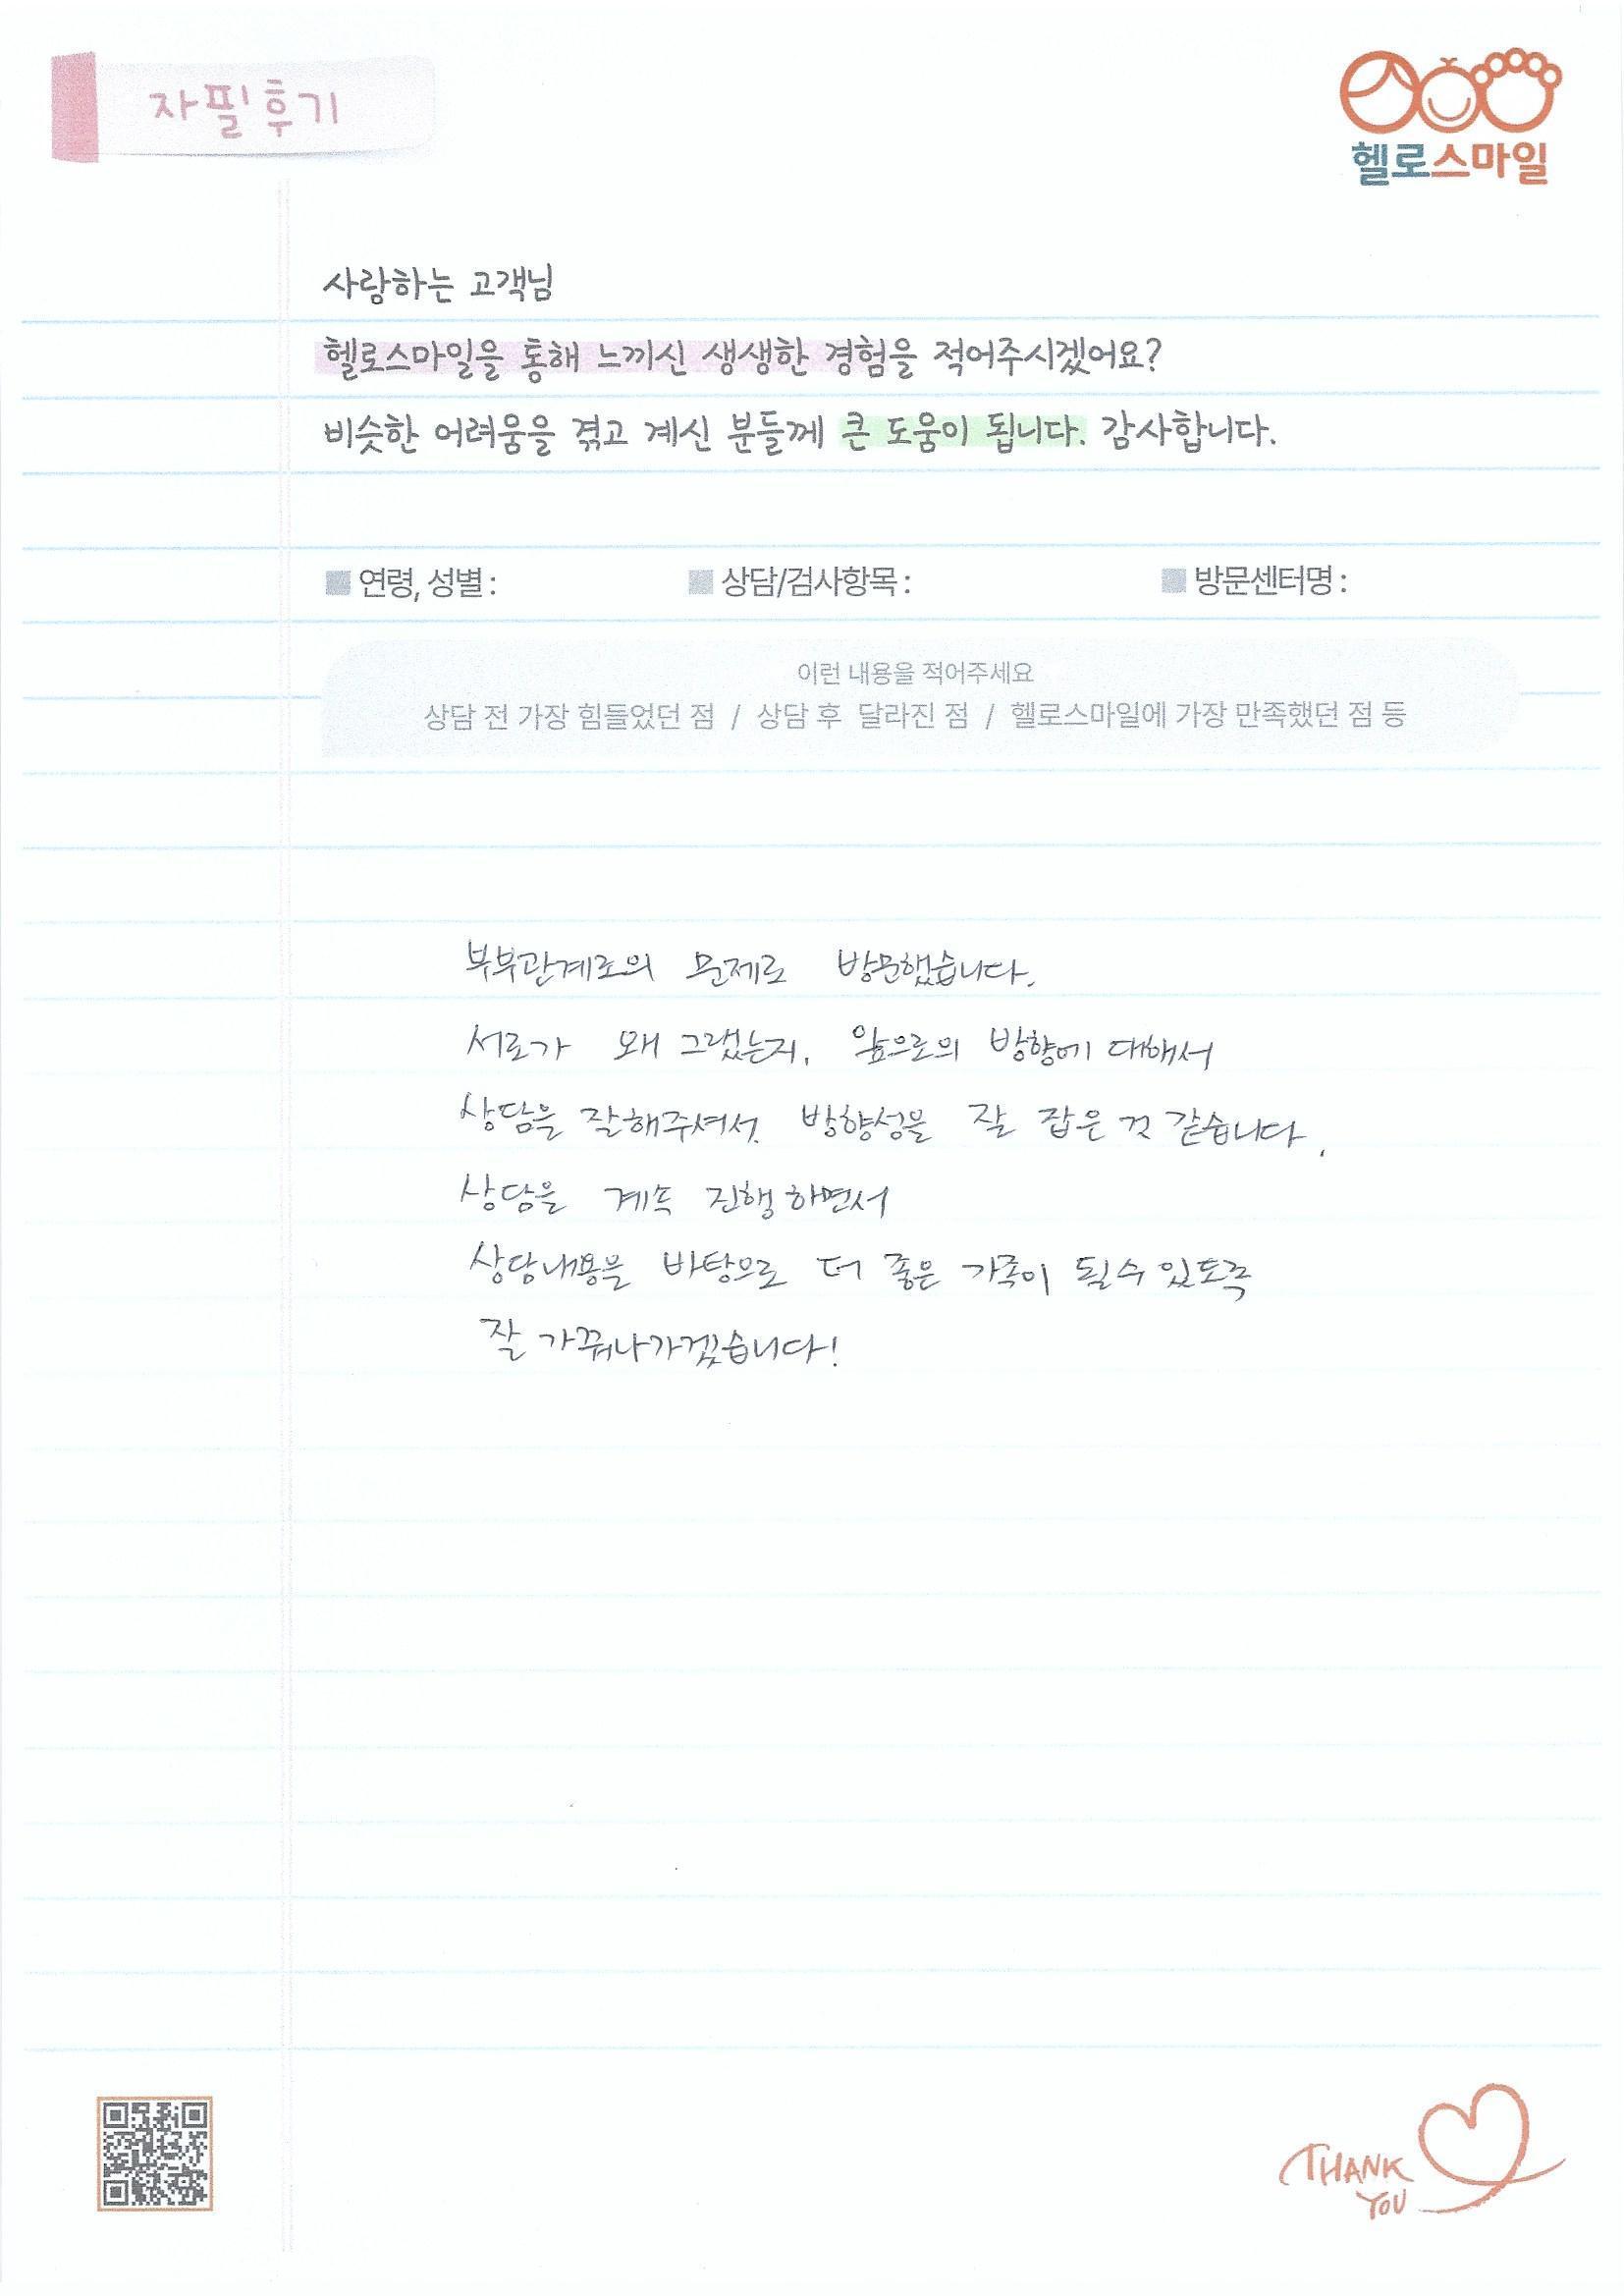 자필후기
헬로스마일
사랑하는 고객님
헬로스마일을 통해 느끼신 생생한 경험을 적어주시겠어요?
비슷한 어려움을 겪고 계신 분들께 큰 도움이 됩니다. 감사합니다.
■ 연령, 성별 : ■ 상담/검사항목 : ■ 방문센터명 :
이런 내용을 적어주세요
상담 전 가장 힘들었던 점 / 상담 후 달라진 점 / 헬로스마일에 가장 만족했던 점 등
부부관계로의 문제로 방문했습니다.
서로가 왜 그랬는지, 앞으로의 방향에 대해서
상담을 잘해주셔서 방향성을 잘 잡은 것 같습니다.
상담을 계속 진행하면서
상담내용을 바탕으로 더 좋은 가족이 될수 있도록
잘 가꿔나가겠습니다!
THANK
YOU